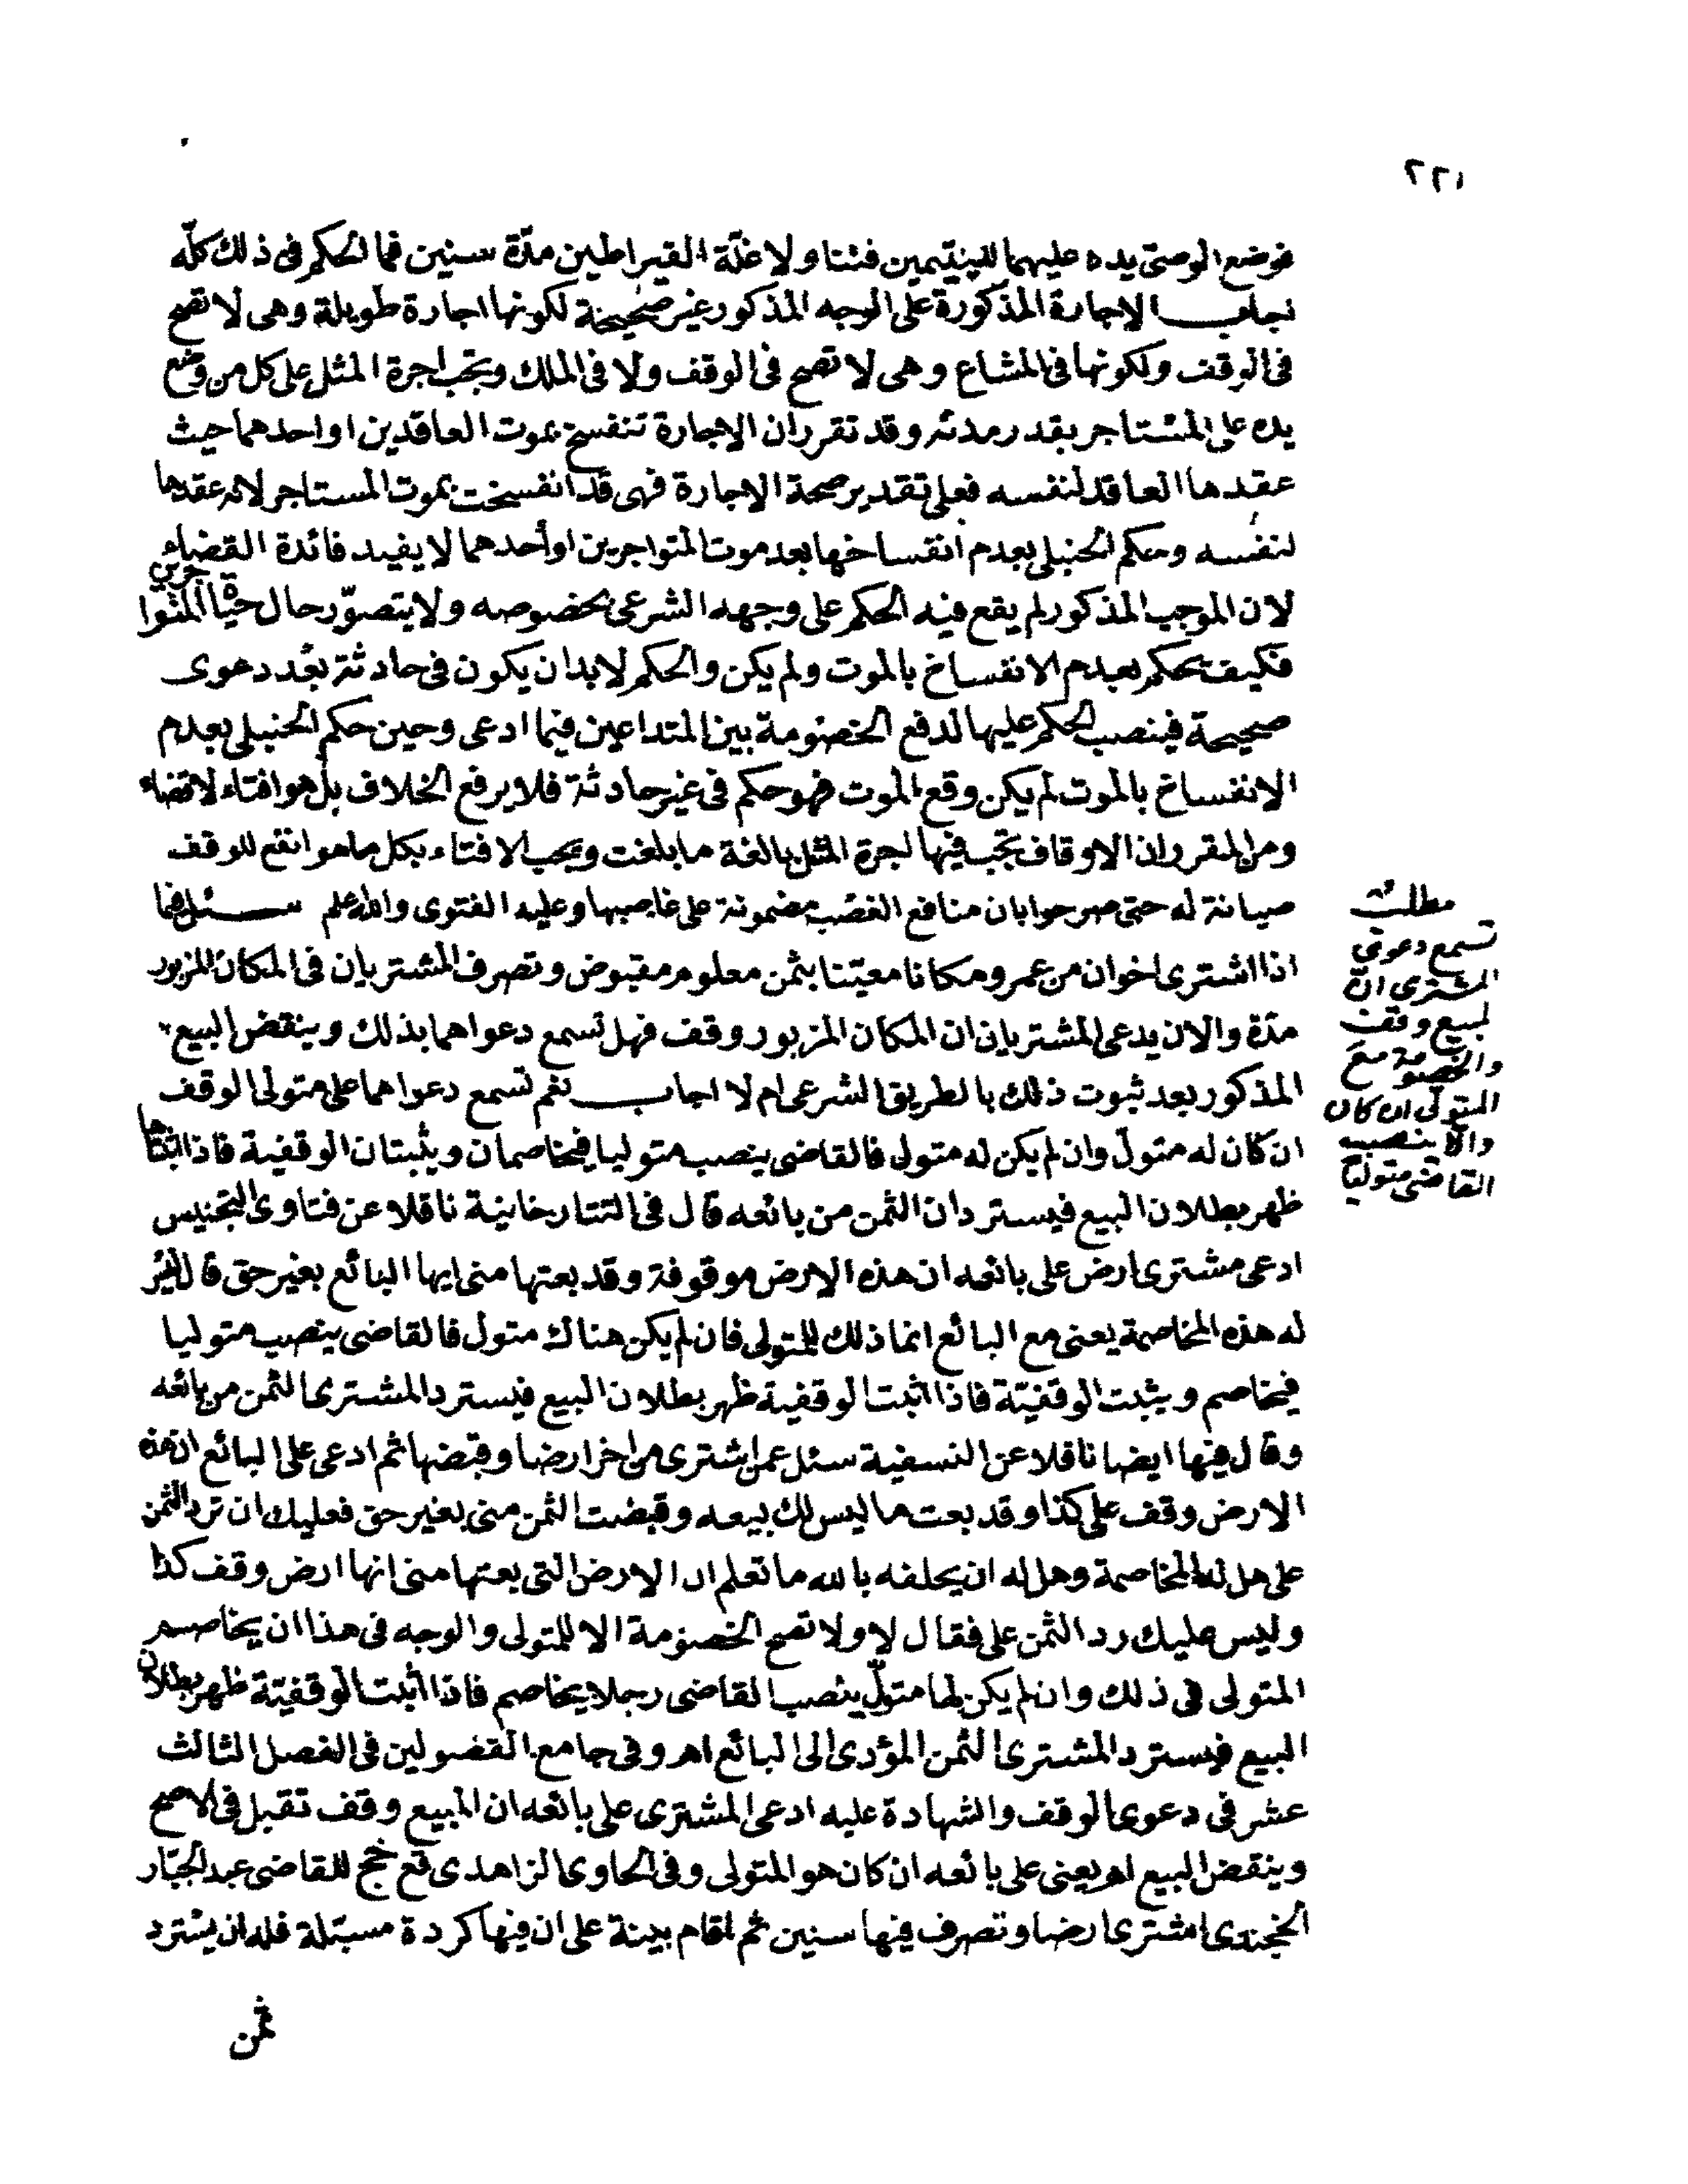 ٢٢١
فوضع الوصى يده عليهما لليتيمين فتناولا غلة القيراطين مدّة سنين فما الحكم فى ذلك كلّه
اجاب الاجارة المذكورة على الوجه المذكور غير صحيحة لكونها اجارة طويلة وهى لا تصح
فى الوقف ولكونها فى المشاع وهى لا تصح فى الوقف ولا فى الملك وتجب اجرة المثل على كل من وضع
يده على المستاجر بقدر مدته وقد تقرر ان الاجارة تنفسخ بموت العاقدين او احدهما حيث
عقدها العاقد لنفسه فعلى تقدير صحة الاجارة فهى قد انفسخت بموت المستاجر لانه عقدها
لنفسه وحكم الحنبلى بعدم انفساخها بعد موت المتواجرين او أحدهما لا يفيد فائدة القضاء
لان الموجب المذكور لم يقع فيه الحكم على وجهه الشرعى بخصوصه ولا يتصوّر حال حياة المتواجرين
فكيف يحكم بعدم الانفساخ بالموت ولم يكن والحكم لا بد ان يكون فى حادثة بعد دعوى
صحيحة فينصب الحكم عليها لدفع الخصومة بين المتداعين فيما ادعى وحين حكم الحنبلى بعدم
الانفساخ بالموت لم يكن وقع الموت فهو حكم فى غير حادثة فلا يرفع الخلاف بل هو افتاء لا قضاء
ومن المقرر ان الاوقاف تجب فيها اجرة المثل بالغة ما بلغت ويجب الافتاء بكل ما هو انفع للوقف
صيانة له حتى صرحوا بان منافع الغصب مضمونة على غاصبها وعليه الفتوى والله اعلم سئل فيما
اذا اشترى اخوان من عمرو مكانا معيّنا بثمن معلوم مقبوض وتصرف المشتريان فى المكان المزبور
مدّة والان يدعى المشتريان ان المكان المزبور وقف فهل تسمع دعواهما بذلك وينقض البيع
المذكور بعد ثبوت ذلك بالطريق الشرعى ام لا اجاب نعم تسمع دعواهما على متولى الوقف
ان كان له متول وان لم يكن له متولى فالقاضى ينصب متوليا فيخاصمان ويثبتان الوقفية فاذا اثبتاها
ظهر بطلان البيع فيستردان الثمن من بائعه قال فى التتارخانية ناقلا عن فتاوى التجنيس
ادعى مشترى ارض على بائعه ان هذه الارض موقوفة وقد بعتها منى ايها البائع بغير حق قال ليس
له هذه المخاصمة يعنى مع البائع انما ذلك للمتولى فان لم يكن هناك متول فالقاضى ينصب متوليا
فيخاصم ويثبت الوقفيّة فاذا اثبت الوقفية ظهر بطلان البيع فيسترد المشترى الثمن من بائعه
وقال فيها ايضا ناقلا عن النسفية سئل عمن اشترى من اخر ارضا وقبضها ثم ادعى على البائع ان هذه
الارض وقف على كذا وقد بعت ما ليس لك بيعه وقبضت الثمن منى بغير حق فعليك ان ترد الثمن
على هل له المخاصمة وهل له ان يحلفه بالله ما تعلم ان الارض التى بعتها منى انها ارض وقف كذا
وليس عليك رد الثمن على فقال لا ولا تصح الخصومة الا للمتولى والوجه فى هذا ان يخاصم
المتولى فى ذلك وان لم يكن لها متولّ ينصب القاضى رجلا يخاصم فاذا اثبت الوقفيّة ظهر بطلان
البيع فيسترد المشترى الثمن المؤدى الى البائع اهـ وفى جامع الفضولين فى الفصل الثالث
عشر فى دعوى الوقف والشهادة عليه ادعى المشترى على بائعه ان المبيع وقف تقبل فى الاصح
وينقض البيع اهـ يعنى على بائعه ان كان هو المتولى وفى الحاوى الزاهدى قع خج للقاضى عبد الجبّار
الخجندى اشترى ارضا وتصرف فيها سنين ثم اقام بينة على ان فيها كردة مسبّلة فله ان يسترد
ثمن
مطلب
تسمع دعوى
المشترى ان
المبيع وقف
والخصومة مع
المتولى ان كان
والا ينصب
القاضى متوليا